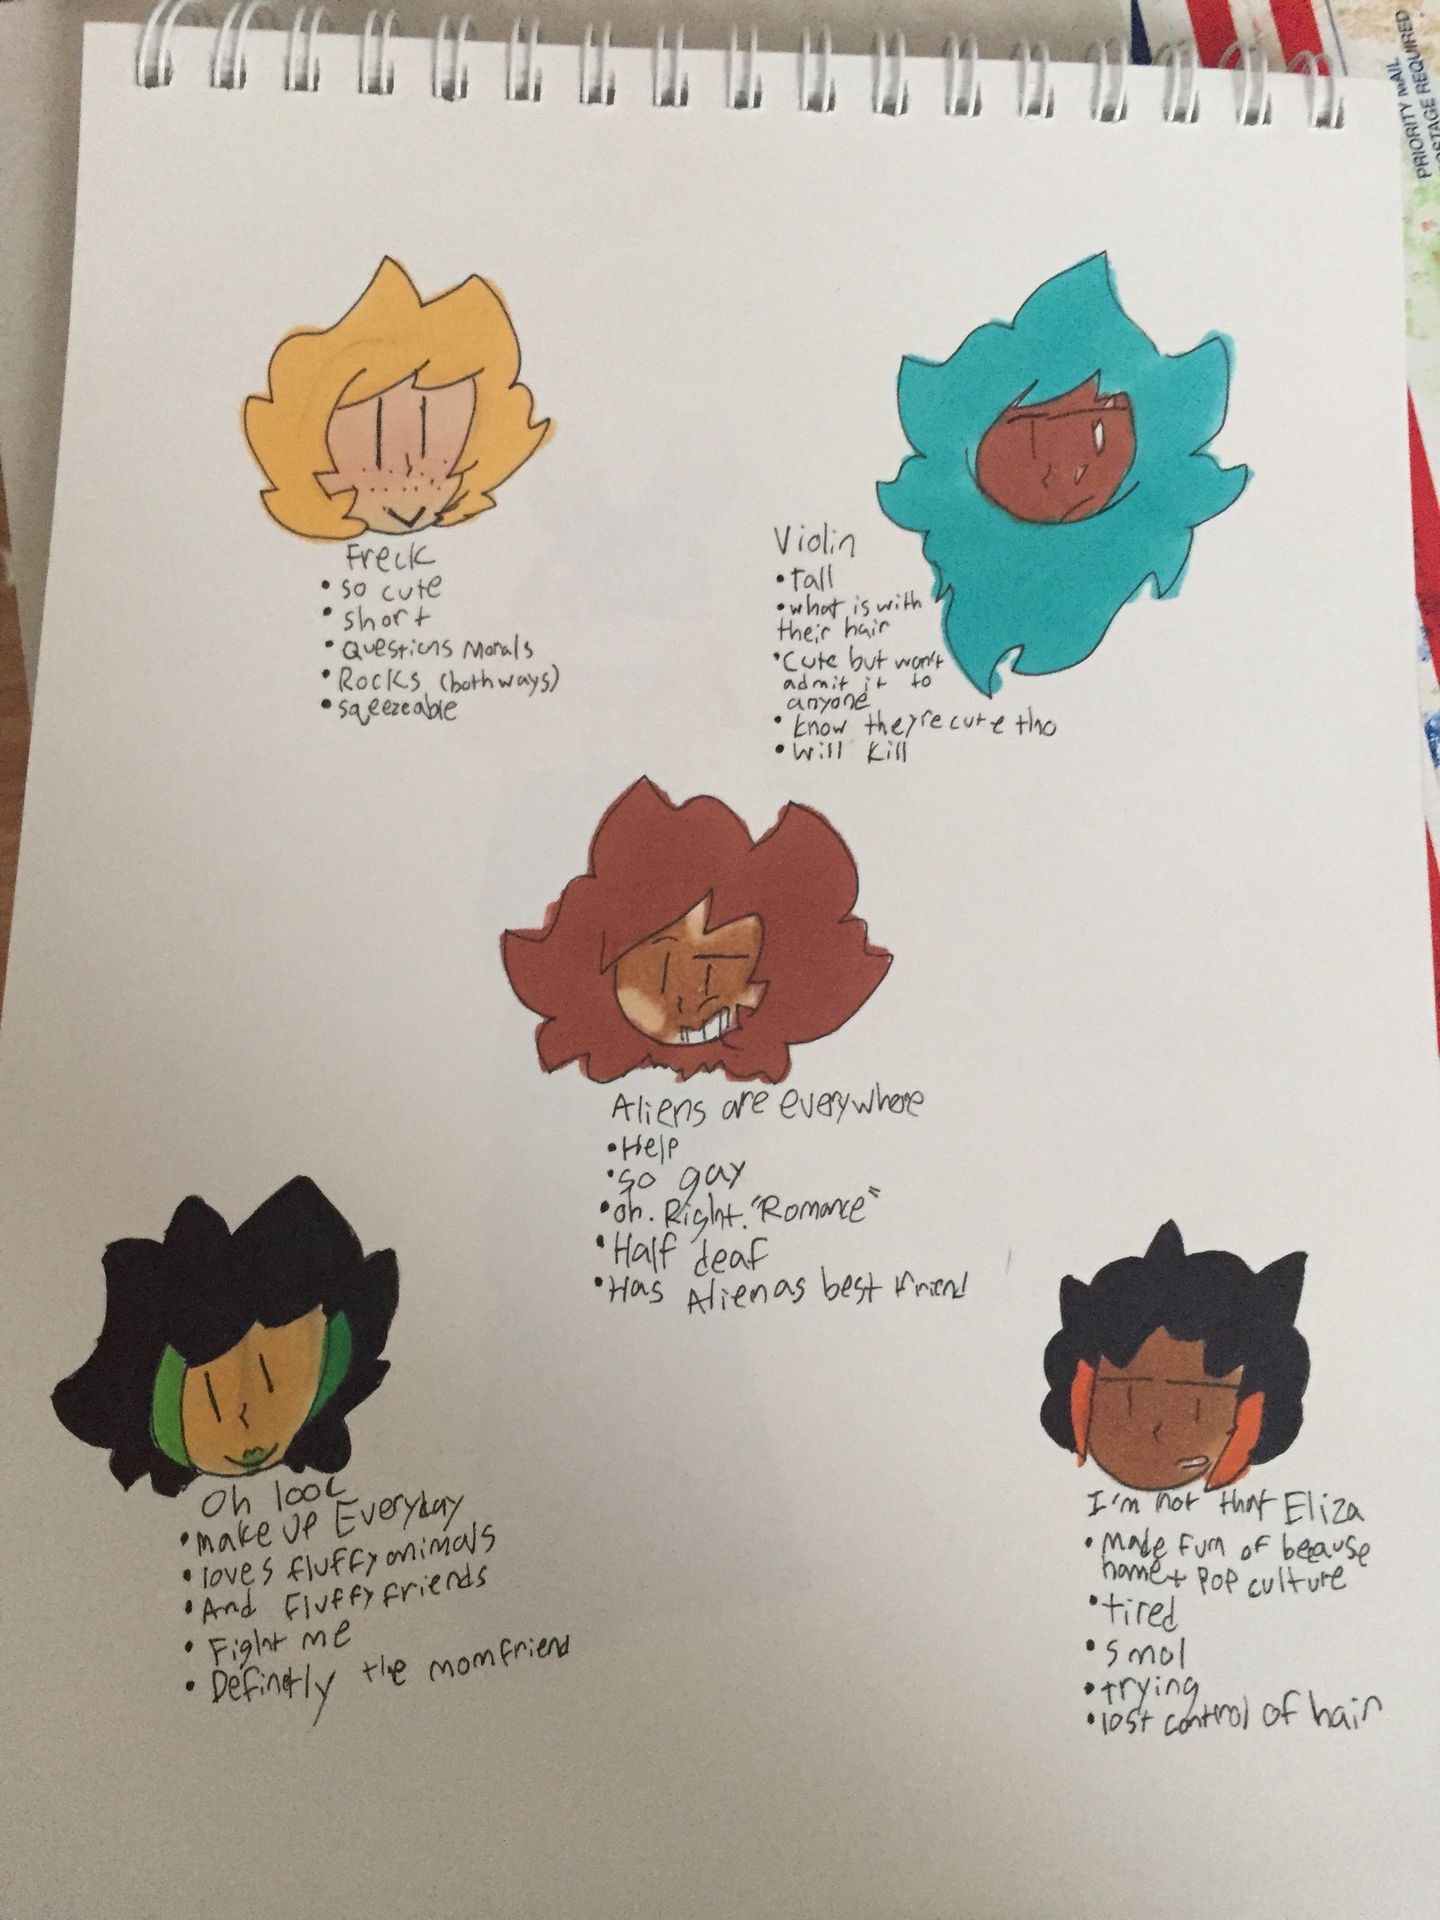 PRIORITY MAIL
POSTAGE REQUIRED
Freck
• so cute
• short
• Questions Morals
• Rocks (both ways)
• sqeezeable
Violin
• Tall
• what is with
their hair
• Cute but won't
admit it to
anyone
• know they're cute tho
• Will Kill
Aliens are everywhere
• Help
• so gay
• oh. Right. "Romance"
• Half deaf
• Has Alien as best friend
Oh look
• make up Everyday
• loves fluffy animals
• And Fluffy friends
• Fight me
• Definetly the mom friend
I'm not that Eliza
• Made fun of because
name + pop culture
• tired
• smol
• trying
• lost control of hair